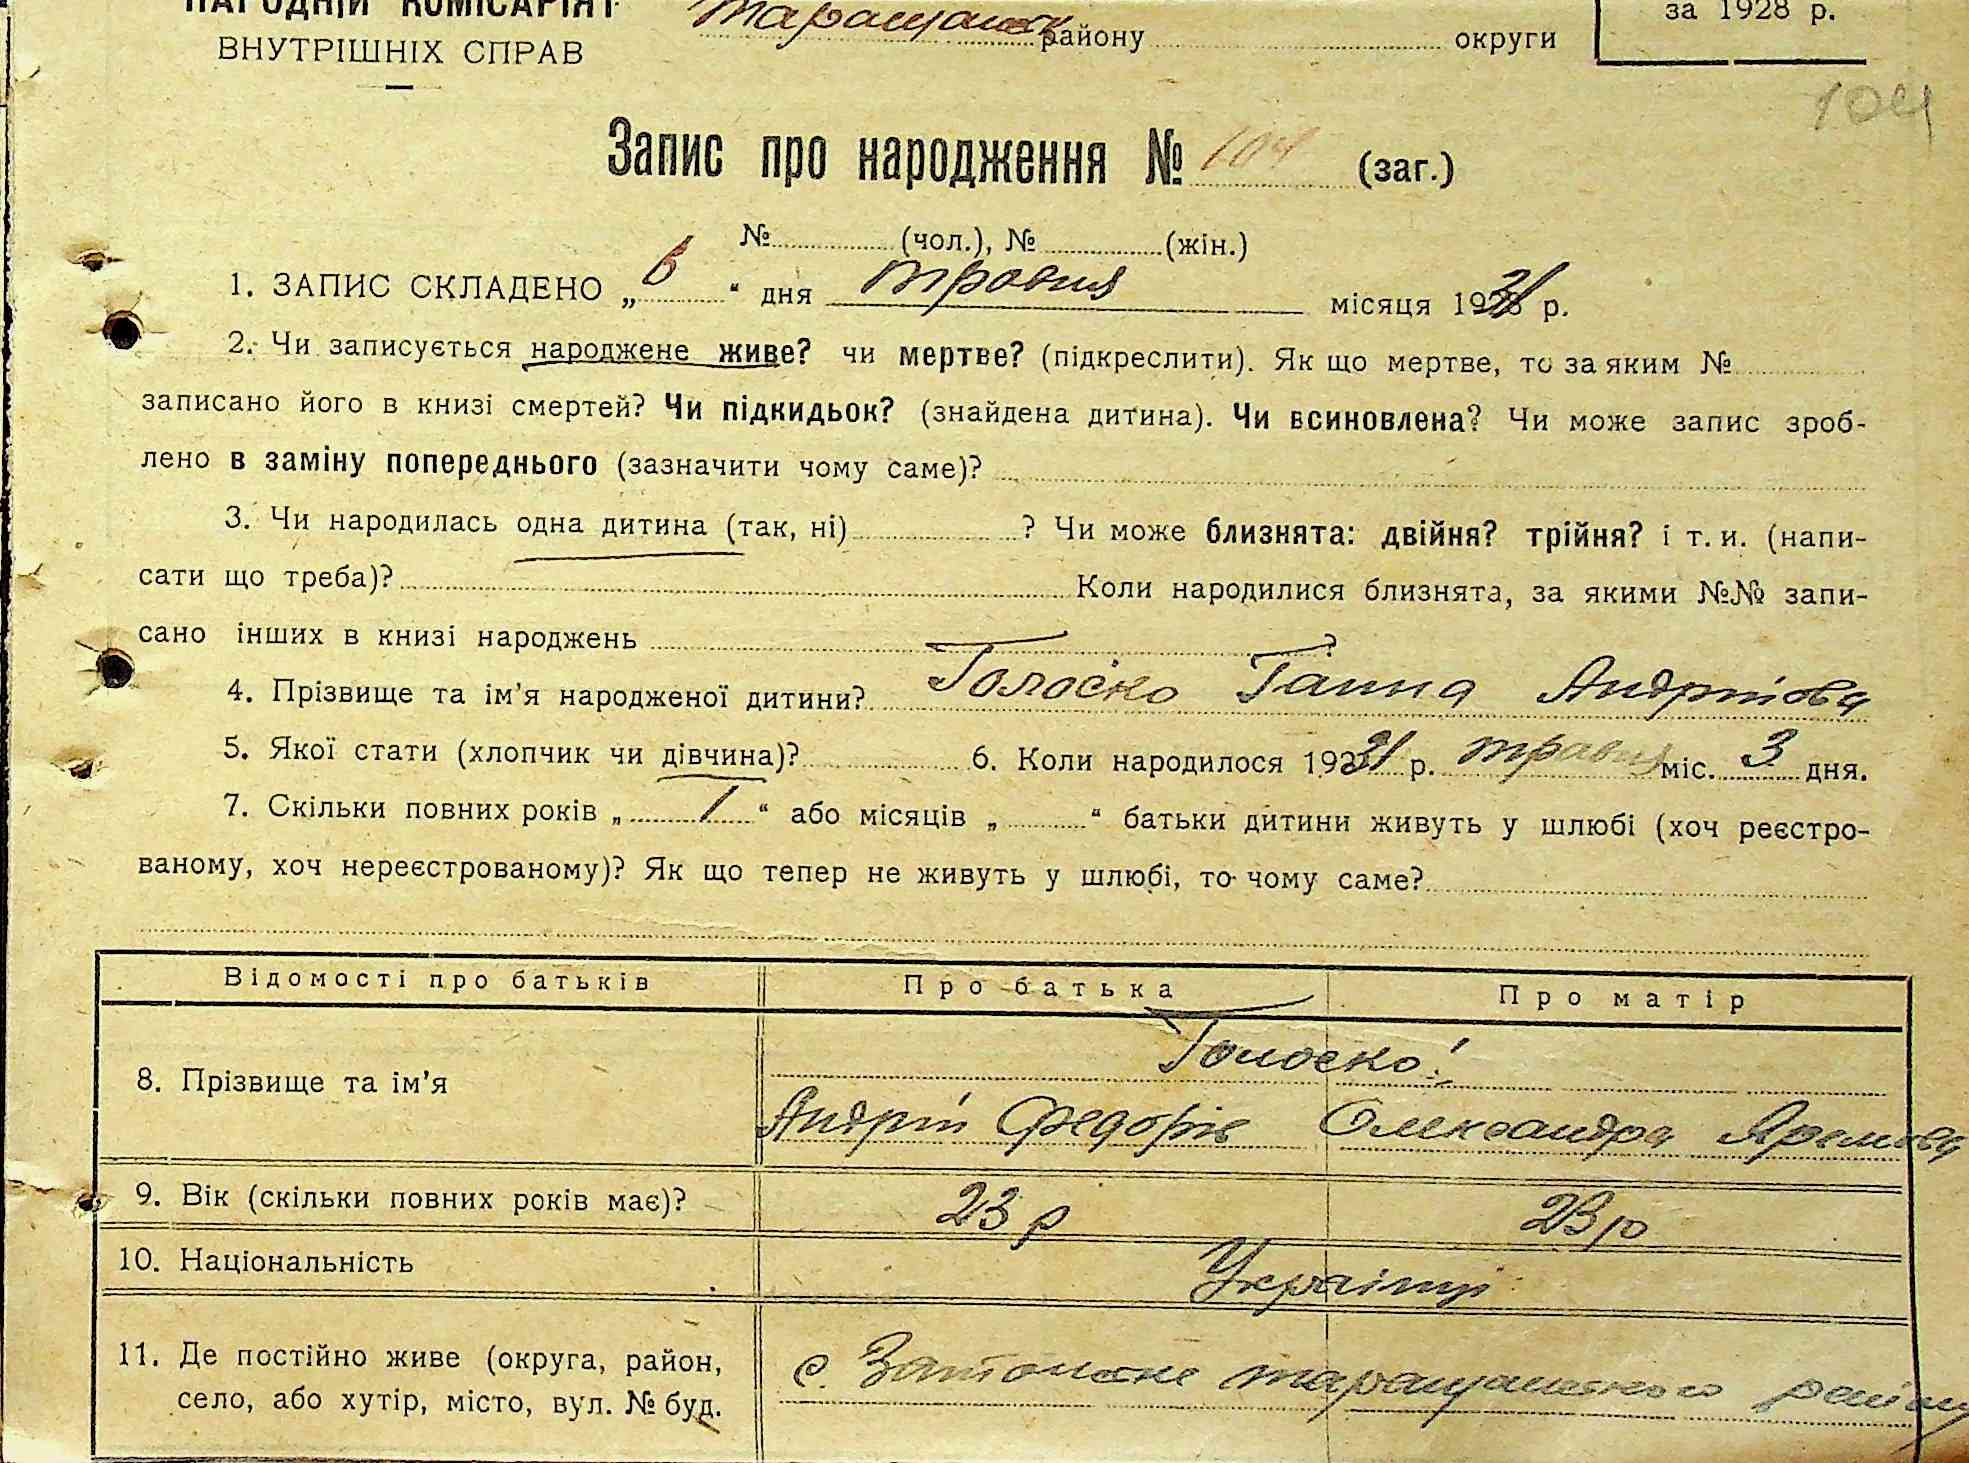 НАРОДНІЙ КОМІСАРІЯТ
за 1928 р.
ВНУТРІШНІХ СПРАВ
району округи
104
Запис про народження № 104 (заг.)
№ (чол.), № (жін.)
1. ЗАПИС СКЛАДЕНО „6“ дня травня місяця 1931 р.
2. Чи записується народжене живе? чи мертве? (підкреслити). Як що мертве, то за яким №
записано його в книзі смертей? Чи підкидьок? (знайдена дитина). Чи всиновлена? Чи може запис зроб-
лено в заміну попереднього (зазначити чому саме)?
3. Чи народилась одна дитина (так, ні) ? Чи може близнята: двійня? трійня? і т. и. (напи-
сати що треба)? Коли народилися близнята, за якими №№ запи-
сано інших в книзі народжень ?
4. Прізвище та ім'я народженої дитини? Голоско Ганна Андріїова
5. Якої стати (хлопчик чи дівчина)? 6. Коли народилося 1931 р. травня міс. 3 дня.
7. Скільки повних років „1“ або місяців „ “ батьки дитини живуть у шлюбі (хоч реєстро-
ваному, хоч нереєстрованому)? Як що тепер не живуть у шлюбі, то чому саме?
Відомості про батьків Про батька Про матір
8. Прізвище та ім'я Голоско!
Андрій Федорів Олександра Яремова
9. Вік (скільки повних років має)? 23 р 23 р
10. Національність Українці
11. Де постійно живе (округа, район, с. таращанського району
село, або хутір, місто, вул. № буд.